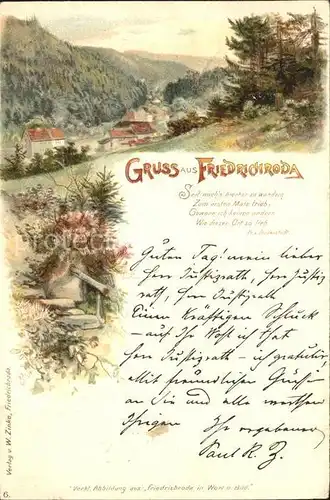 GRUSS AUS FRIEDRICHRODA
Zum ersten Male trieb,
Gewann ich keinen andern
Wie diesen Ort so lieb
Guten Tag! mein lieber
Herr Justizrath, Herr Justiz
rath, Herr Justizrath
Einen kräftigen Schluck
- auf Ihr Wohl ich that
Herr Justizrath - ich gratulir
Mit freundlichen Grüß-
en an Sie und alle werthen
Ihrigen Ihr ergebener
Paul R. Z.
Verlag v. W. Zinke, Friedrichroda.
Verkl. Abbildung aus: „Friedrichroda in Wort u. Bild."
6.